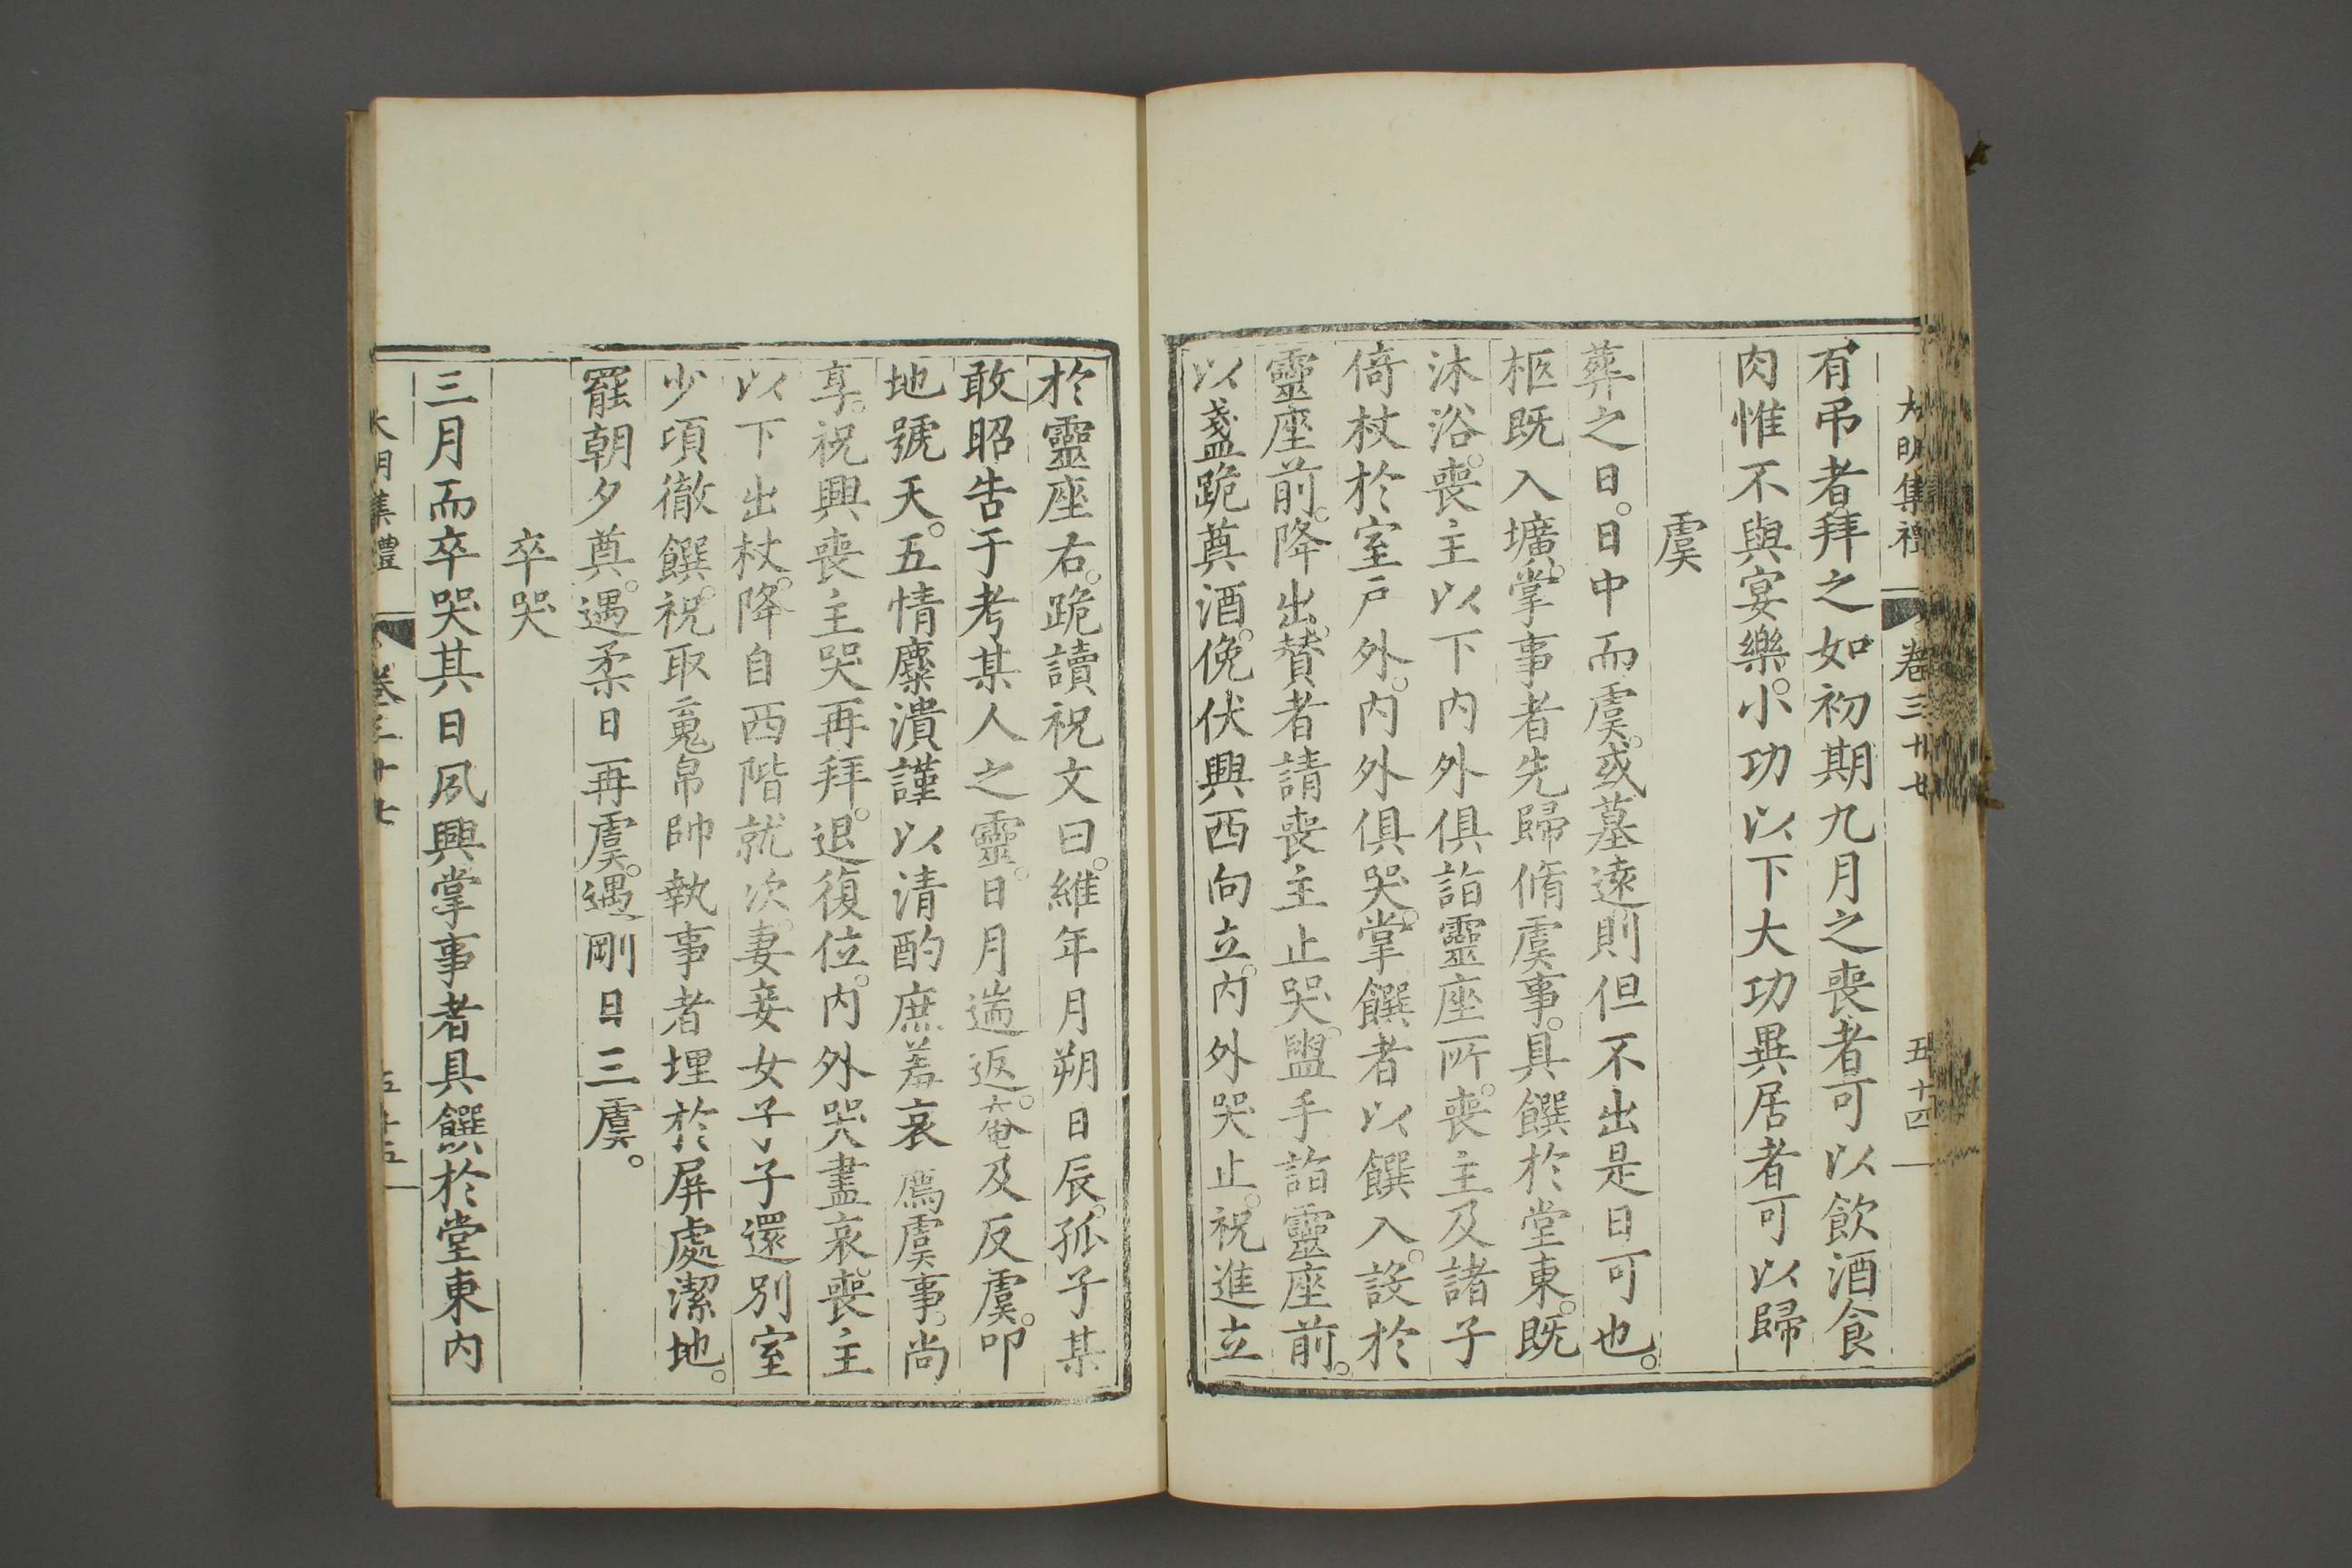 大明集禮 卷三十七 五十四
有吊者拜之如初期九月之喪者可以飲酒食
肉惟不與宴樂。小功以下大功異居者可以歸
虞
葬之日。日中而虞。或墓遠則但不出是日可也。
柩既入壙。掌事者先歸脩虞事。具饌於堂東。既
沐浴。喪主以下内外俱詣靈座所。喪主及諸子
倚杖於室戶外。内外俱哭。掌饌者以饌入。設於
靈座前。降出。贊者請喪主止哭。盥手詣靈座前。
以盞跪奠酒。俛伏興西向立。内外哭止。祝進立
於靈座右。跪讀祝文曰。維年月朔日辰。孤子某
敢昭告于考某人之靈。日月遄返。奄及反虞。叩
地號天。五情麋潰謹以清酌庶羞哀薦虞事。尚
享。祝興喪主哭再拜。退復位。内外哭盡哀。喪主
以下出杖。降自西階就次。妻妾女子子還别室
少頃徹饌。祝取䰟帛帥執事者埋於屏處潔地。
罷朝夕奠。遇柔日再虞。遇剛日三虞。
卒哭
三月而卒哭其日夙興掌事者具饌於堂東内
大明集禮 卷三十七 五十五